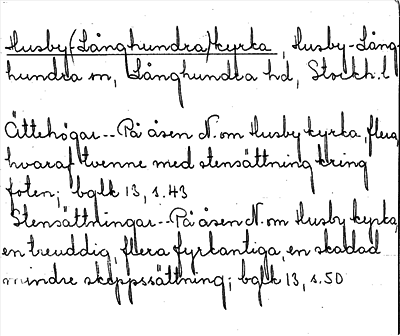 Husby (Långhundra) kyrka, Husby-Lång-
hundra sn, Långhundra hd, Stockh. l
Ättehögar -- På åsen N. om Husby kyrka, flera,
hvaraf tvenne med stensättning kring
foten; bglk 13, s. 43
Stensättningar -- På åsen N. om Husby kyrka,
en treuddig, flera fyrkantiga, en skadad
mindre skeppssättning; bglk 13, s. 50